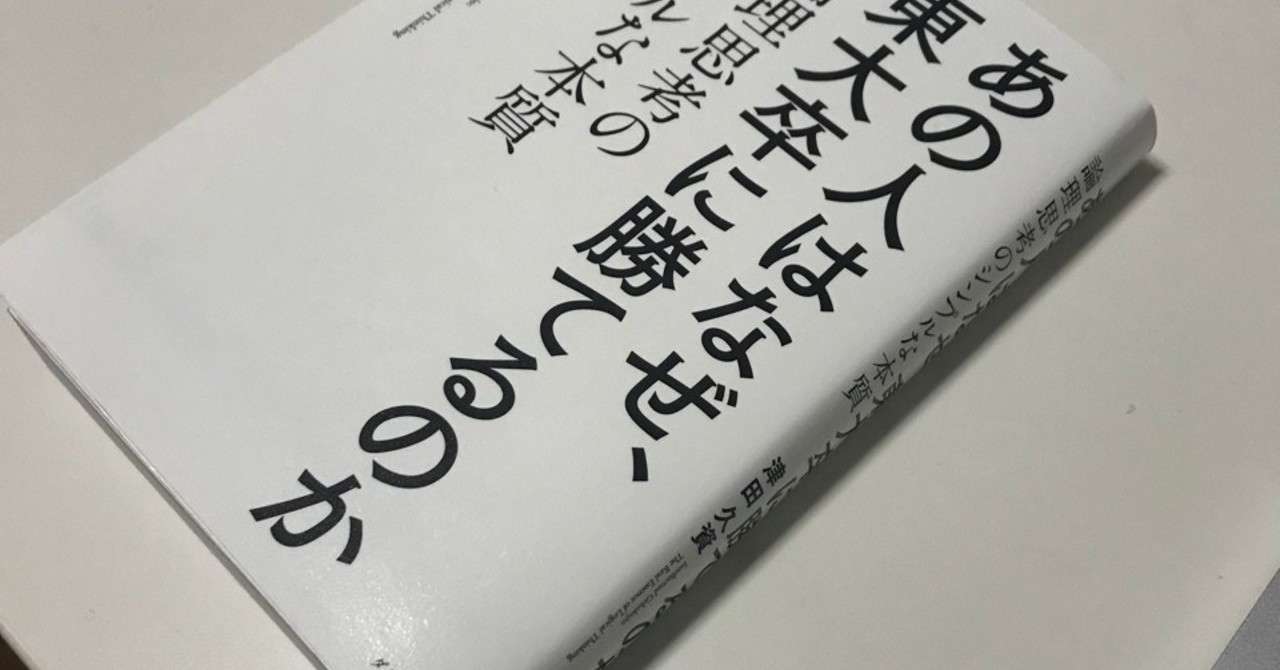 あの人はなぜ、
東大卒に勝てるのか
理思考の
ルな本質
Thinking
論理思考のシンプルな本質
津田久資
Intellectual Gekokujo
The Real Essence of Logical Thinking